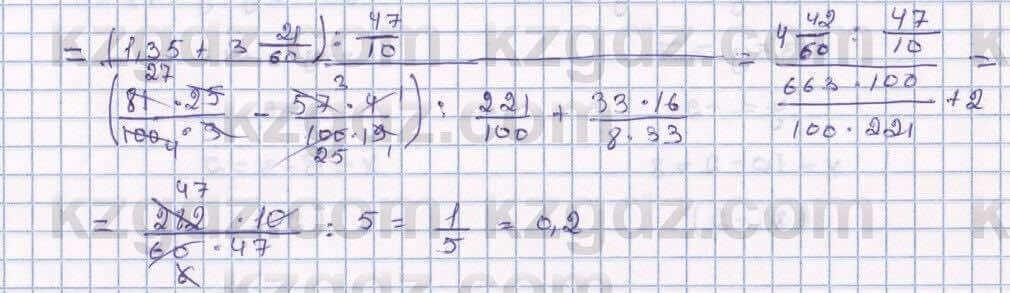 = (1,35 + 3 21/60) : 47/10 / ((81 · 25)/(100 · 3) - (57 · 4)/(100 · 19)) : 221/100 + (33 · 16)/(8 · 33) = 4 42/60 : 47/10 / (663 · 100)/(100 · 221) + 2 =
27 4 3 1 25 1
= (282 · 10)/(60 · 47) : 5 = 1/5 = 0,2
47 6
kzgdz.com